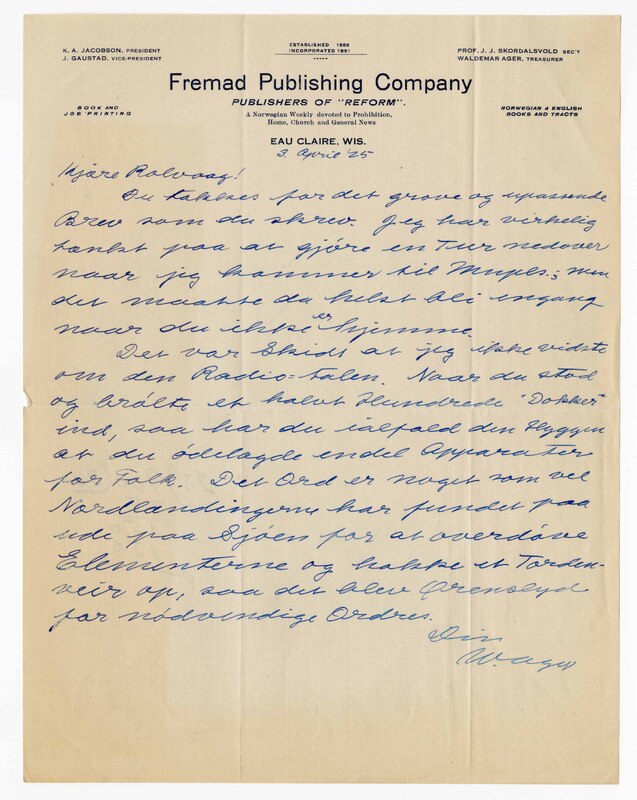 K. A. JACOBSON, PRESIDENT
J. GAUSTAD, VICE-PRESIDENT
ESTABLISHED 1886
INCORPORATED 1891
PROF. J. J. SKORDALSVOLD SEC'Y
WALDEMAR AGER, TREASURER
Fremad Publishing Company
PUBLISHERS OF "REFORM".
BOOK AND
JOB PRINTING
A Norwegian Weekly devoted to Prohibition,
Home, Church and General News
NORWEGIAN & ENGLISH
BOOKS AND TRACTS
EAU CLAIRE, WIS.
3. April '25
Kjære Rolvaag!
Du takkes for det grove og upassende
Brev som du skrev. Jeg har virkelig
tænkt paa at gjøre en Tur nedover
naar jeg kommer til Mnpls.; men
det maatte da helst bli engang
naar du ikke er hjemme.
Det var Skidt at jeg ikke vidste
om den Radio-talen. Naar du stod
og brølte et halvt Hundrede "Dokker"
ind, saa har du ialfald den Hyggen
at du ødelagde endel Apparater
for Folk. Det Ord er noget som vel
Nordlændingerne har fundet paa
ude paa Sjøen for at overdøve
Elementerne og kakke et Torden-
veir op, saa det blev Ørenslyd
for nødvendige Ordres.
Din
W. Ager